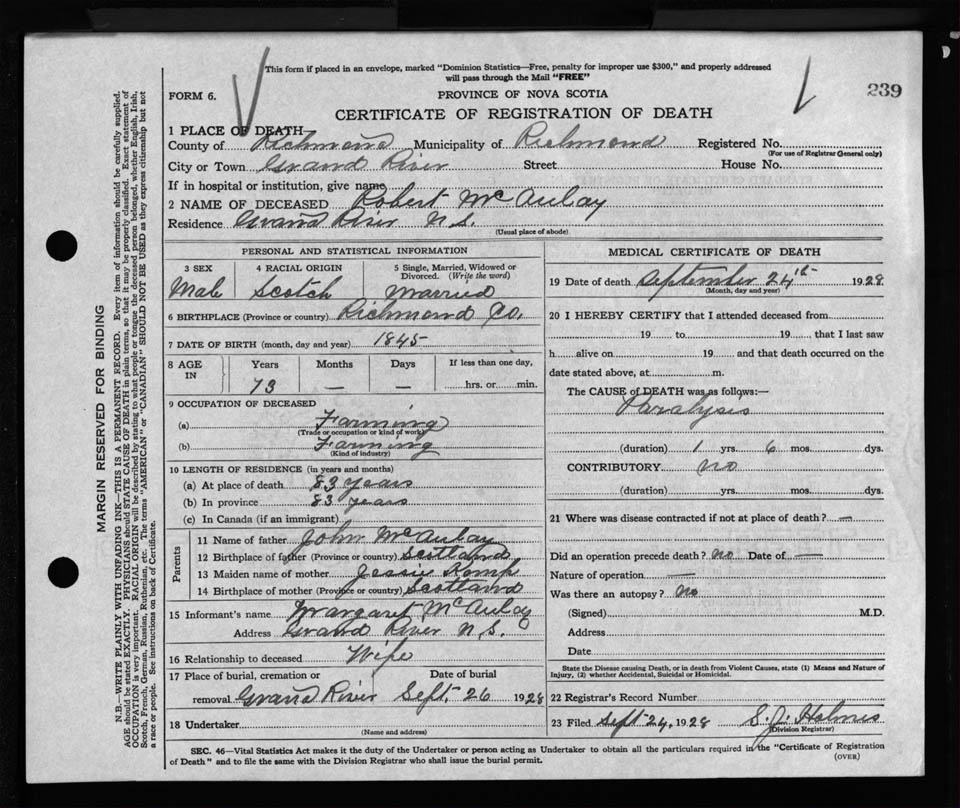 This form if placed in an envelope, marked "Dominion Statistics—Free, penalty for improper use $300," and properly addressed
will pass through the Mail "FREE"
239
FORM 6.
PROVINCE OF NOVA SCOTIA
CERTIFICATE OF REGISTRATION OF DEATH
1 PLACE OF DEATH—
County of Richmond Municipality of Richmond Registered No.
(For use of Registrar General only)
City or Town Grand River Street House No.
If in hospital or institution, give name
2 NAME OF DECEASED Robert McAulay
Residence Grand River N.S.
(Usual place of abode)
PERSONAL AND STATISTICAL INFORMATION
3 SEX 4 RACIAL ORIGIN 5 Single, Married, Widowed or
Divorced. (Write the word)
Male Scotch Married
6 BIRTHPLACE (Province or country) Richmond Co.
7 DATE OF BIRTH (month, day and year) 1845
8 AGE IN Years Months Days If less than one day,
73 — — hrs. or min.
9 OCCUPATION OF DECEASED
(a) Farming
(Trade or occupation or kind of work)
(b) Farming
(Kind of industry)
10 LENGTH OF RESIDENCE (in years and months)
(a) At place of death 83 years
(b) In province 83 years
(c) In Canada (if an immigrant)
Parents
11 Name of father John McAulay
12 Birthplace of father (Province or country) Scotland
13 Maiden name of mother Jessie Kemp
14 Birthplace of mother (Province or country) Scotland
15 Informant's name Margaret McAulay
Address Grand River N.S.
16 Relationship to deceased Wife
17 Place of burial, cremation or Date of burial
removal Grand River Sept. 26 1928
18 Undertaker
(Name and address)
MEDICAL CERTIFICATE OF DEATH
19 Date of death September 24th 1928
(Month, day and year)
20 I HEREBY CERTIFY that I attended deceased from
19 to 19 that I last saw
h alive on 19 and that death occurred on the
date stated above, at m.
The CAUSE of DEATH was as follows:—
Paralysis
(duration) 1 yrs. 6 mos. dys.
CONTRIBUTORY no
(duration) yrs. mos. dys.
21 Where was disease contracted if not at place of death? —
Did an operation precede death? no Date of —
Nature of operation —
Was there an autopsy? no
(Signed) M.D.
Address
Date
State the Disease causing Death, or in death from Violent Causes, state (1) Means and Nature of
Injury, (2) whether Accidental, Suicidal or Homicidal.
22 Registrar's Record Number
23 Filed Sept 24, 1928 S.J. Holmes
(Division Registrar)
SEC. 46—Vital Statistics Act makes it the duty of the Undertaker or person acting as Undertaker to obtain all the particulars required in the "Certificate of Registration
of Death" and to file the same with the Division Registrar who shall issue the burial permit.
(OVER)
MARGIN RESERVED FOR BINDING
N.B.—WRITE PLAINLY WITH UNFADING INK—THIS IS A PERMANENT RECORD. Every item of information should be carefully supplied.
AGE should be stated EXACTLY. PHYSICIANS should STATE CAUSE OF DEATH in plain terms, so that it may be properly classified. Exact statement of
OCCUPATION is very important. RACIAL ORIGIN will be described by stating to what people or tongue the deceased person belonged, whether English, Irish,
Scotch, French, German, Russian, Ruthenian, etc. The terms "AMERICAN" or "CANADIAN" SHOULD NOT BE USED as they express citizenship but not
a race or people. See instructions on back of Certificate.